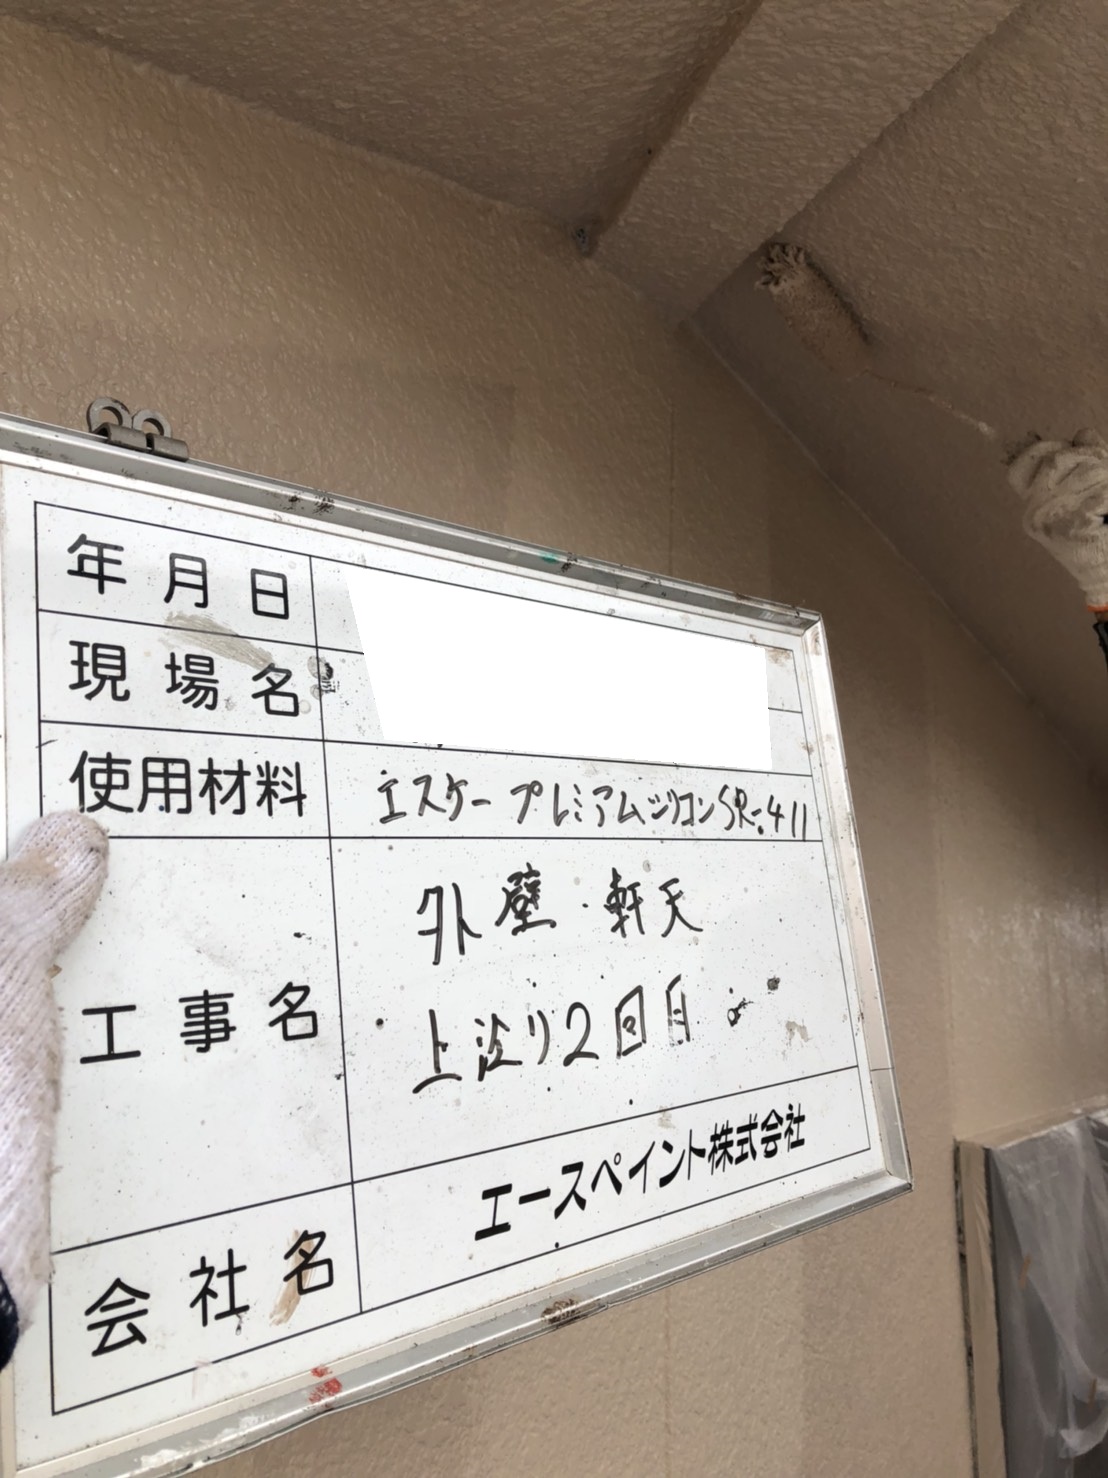 年月日
現場名
使用材料 エスケープレミアムシリコンSR-411
工事名 外壁・軒天
上塗り2回目
会社名 エースペイント株式会社